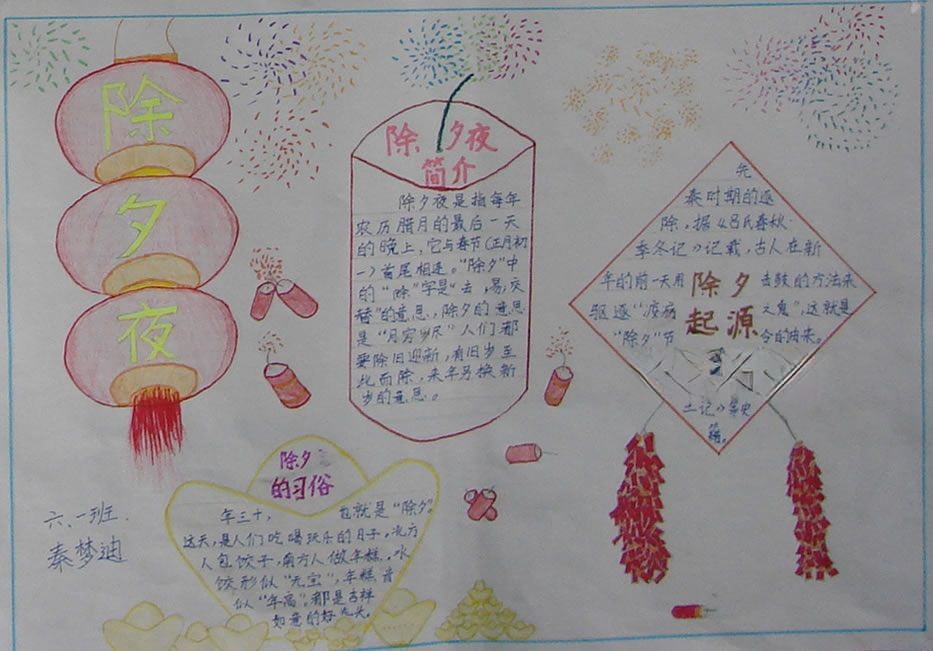 除
夕
夜
除夕夜
简介
除夕夜是指每年
农历腊月的最后一天
的晚上,它与春节(正月初
一)首尾相连。"除夕"中
的"除"字是"去,易,交
替"的意思,除夕的意思
是"月穷岁尽"人们都
要除旧迎新,有旧岁至
此而除,来年另换新
岁的意思。
先
秦时期的逐
除,据《吕氏春秋·
季冬记》记载,古人在新
年的前一天用 击鼓的方法来
驱逐"疫疠 之鬼",这就是
"除夕"节 令的由来。
除夕
起源
土记》等史
籍。
除夕
的习俗
年三十, 也就是"除夕"。
这天,是人们吃喝玩乐的日子。北方
人包饺子,南方人做年糕。水
饺形似"元宝",年糕音
似"年高",都是吉祥
如意的好兆头。
六.一班.
秦梦迪